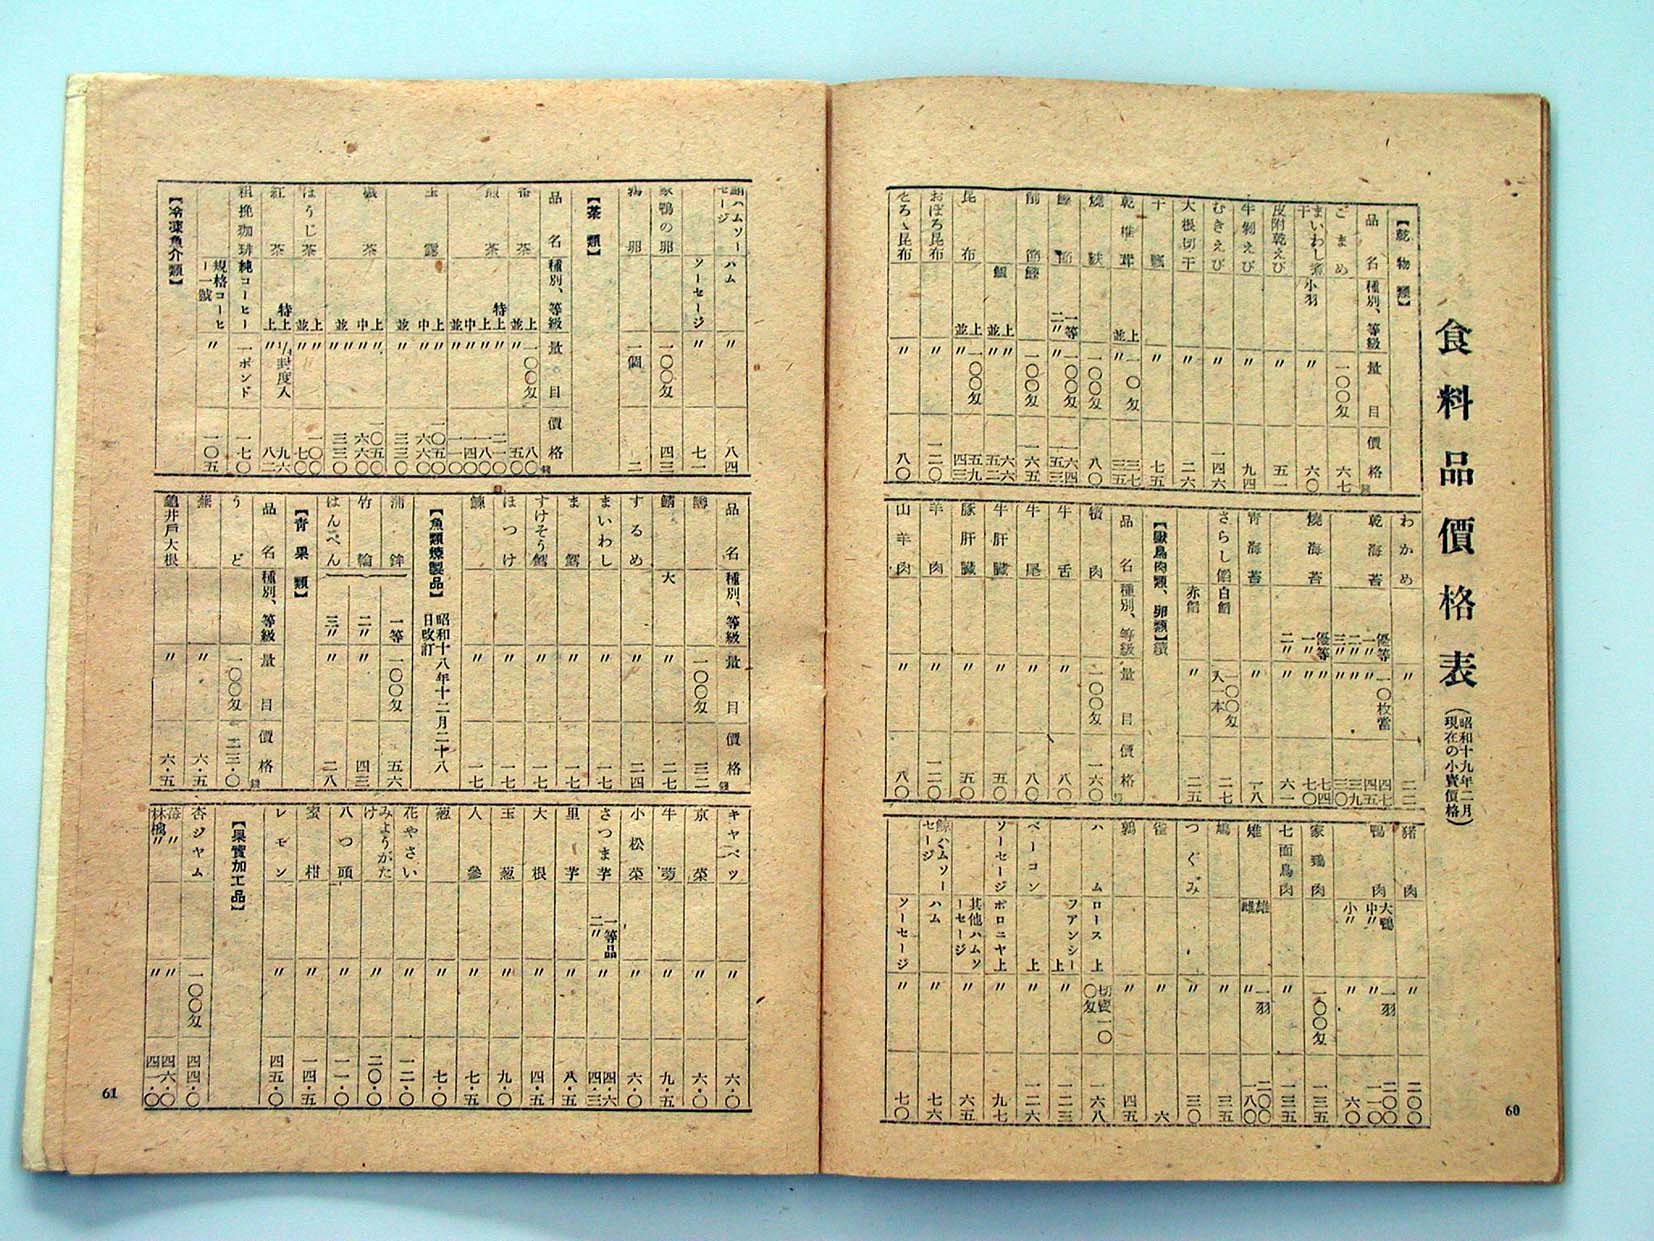 食料品價格表
(昭和十九年二月
現在の小賣價格)
【乾物類】
品名 種別、等級 量目 價格
ごまめ 一〇〇匁 六七
まいわし煮干 小羽 〃 六〇
皮附乾えび 〃 五一
牛剝えび 〃 九四
むきえび 〃 一四六
大根切干 〃 二六
干瓢 〃 七五
乾椎茸 上 一〇匁 三七
並 〃 三三
燒麩 一〇〇匁 八〇
節 一等 一〇〇匁 六四
二〃 〃 五三
削節 一〇〇匁 一六五
上 〃 六六
並 〃 五二
昆布 上 一〇〇匁 五九
並 〃 四三
おぼろ昆布 〃 一二〇
とろゝ昆布 〃 八〇
わかめ 〃 二二
乾海苔 優等 一〇枚當 四七
一〃 〃 四五
二〃 〃 三九
三〃 〃 三〇
燒海苔 優等 〃 七四
一〃 〃 七〇
二〃 〃 六一
靑海苔 〃 一八
さらし餡 白餡 一〇〇匁入一本 二七
赤餡 〃 二五
【獸鳥肉類、卵類】續
品名 種別、等級 量目 價格
肉 一〇〇匁 一六〇
牛舌 〃 八〇
牛尾 〃 八〇
牛肝臟 〃 五〇
豚肝臟 〃 五〇
羊肉 〃 一二〇
山羊肉 〃 八〇
猪肉 〃 二〇〇
鴨肉 大鴨 一羽 二〇〇
中〃 〃 一一〇
小〃 〃 六〇
家鷄肉 一〇〇匁 一三五
七面鳥肉 〃 一三五
雉 雄 一羽 二〇〇
雌 〃 一八〇
鳩 〃 三五
つぐみ 〃 三〇
雀 〃 六
鶉 〃 四五
ハム ロース上 切賣一〇〇匁 一六八
フアンシー上 〃 一二三
ベーコン 上 〃 一二六
ソーセージ ボロニヤ上 〃 九七
其他ハムソーセージ 〃 六五
鯨ハムソーセージ ハム 〃 七六
ソーセージ 〃 七〇
60
ハムソーセージ ハム 〃 八四
ソーセージ 〃 七一
家鴨の卵 一〇〇匁 四三
鶉卵 一個 二
【茶類】
品名 種別、等級 量目 價格
番茶 上 一〇〇匁 八〇
並 〃 五〇
煎茶 特上 〃 二一〇
上 〃 一八〇
中 〃 一四〇
並 〃 一一〇
玉露 上 〃 一〇五〇
中 〃 六六〇
並 〃 三三〇
碾茶 上 〃 一〇五〇
中 〃 六六〇
並 〃 三三〇
ほうじ茶 上 〃 一〇〇
並 〃 七〇
紅茶 特上 1/4封度入 九六
上 〃 八二
粗挽珈琲 純コーヒー 一ポンド 一七〇
規格コーヒー一號 〃 一〇五
【冷凍魚介類】
品名 種別、等級 量目 價格
鱒 一〇〇匁 三二
大 〃 二七
するめ 〃 二四
まいわし 〃 一七
ま鱈 〃 一七
すけそう鱈 〃 一七
ほつけ 〃 一七
鰊 〃 一七
【魚類煉製品】 昭和十八年十二月二十八日改訂
蒲鉾 一等 一〇〇匁 五六
竹輪 二〃 〃 四三
はんぺん 三〃 〃 二八
【靑果類】
品名 種別、等級 量目 價格
うど 一〇〇匁 二三・〇
蕪 〃 六・五
龜井戶大根 〃 六・五
キヤベツ 〃 六・〇
京菜 〃 六・〇
牛蒡 〃 九・五
小松菜 〃 六・〇
さつま芋 一等品 〃 四・六
二〃 〃 四・三
里芋 〃 八・五
大根 〃 四・五
玉葱 〃 九・〇
人參 〃 七・五
葱 〃 七・〇
花やさい 〃 一二・〇
みようがたけ 〃 二〇・〇
八つ頭 〃 一一・〇
蜜柑 〃 一四・五
レモン 〃 四五・〇
【果實加工品】
杏ジヤム 一〇〇匁 四四・〇
苺〃 〃 四六・〇
林檎〃 〃 四一・〇
61